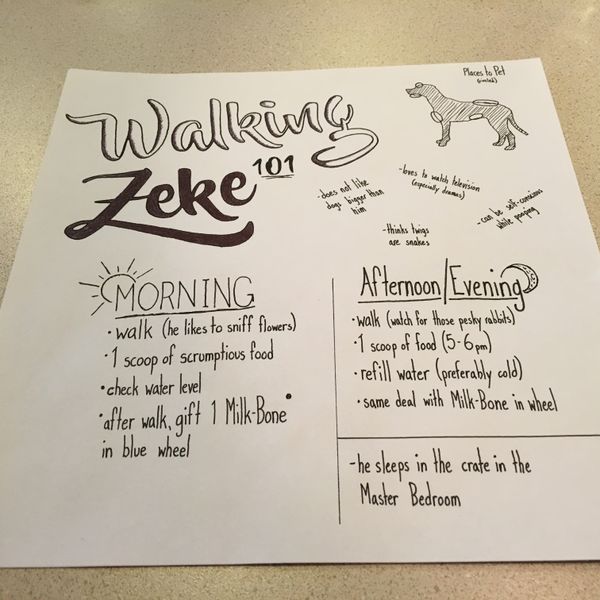 Walking
Zeke 101
Places to Pet
(circled)
-does not like
dogs bigger than
him
-loves to watch television
(especially dramas)
-thinks twigs
are snakes
-can be self-conscious
while pooping
MORNING
•walk (he likes to sniff flowers)
•1 scoop of scrumptious food
•check water level
•after walk, gift 1 Milk-Bone
in blue wheel
Afternoon/Evening
•walk (watch for those pesky rabbits)
•1 scoop of food (5-6pm)
•refill water (preferably cold)
•same deal with Milk-Bone in wheel
-he sleeps in the crate in the
Master Bedroom